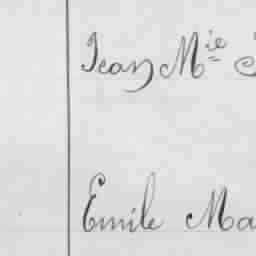 Jean Mie
Emile Ma